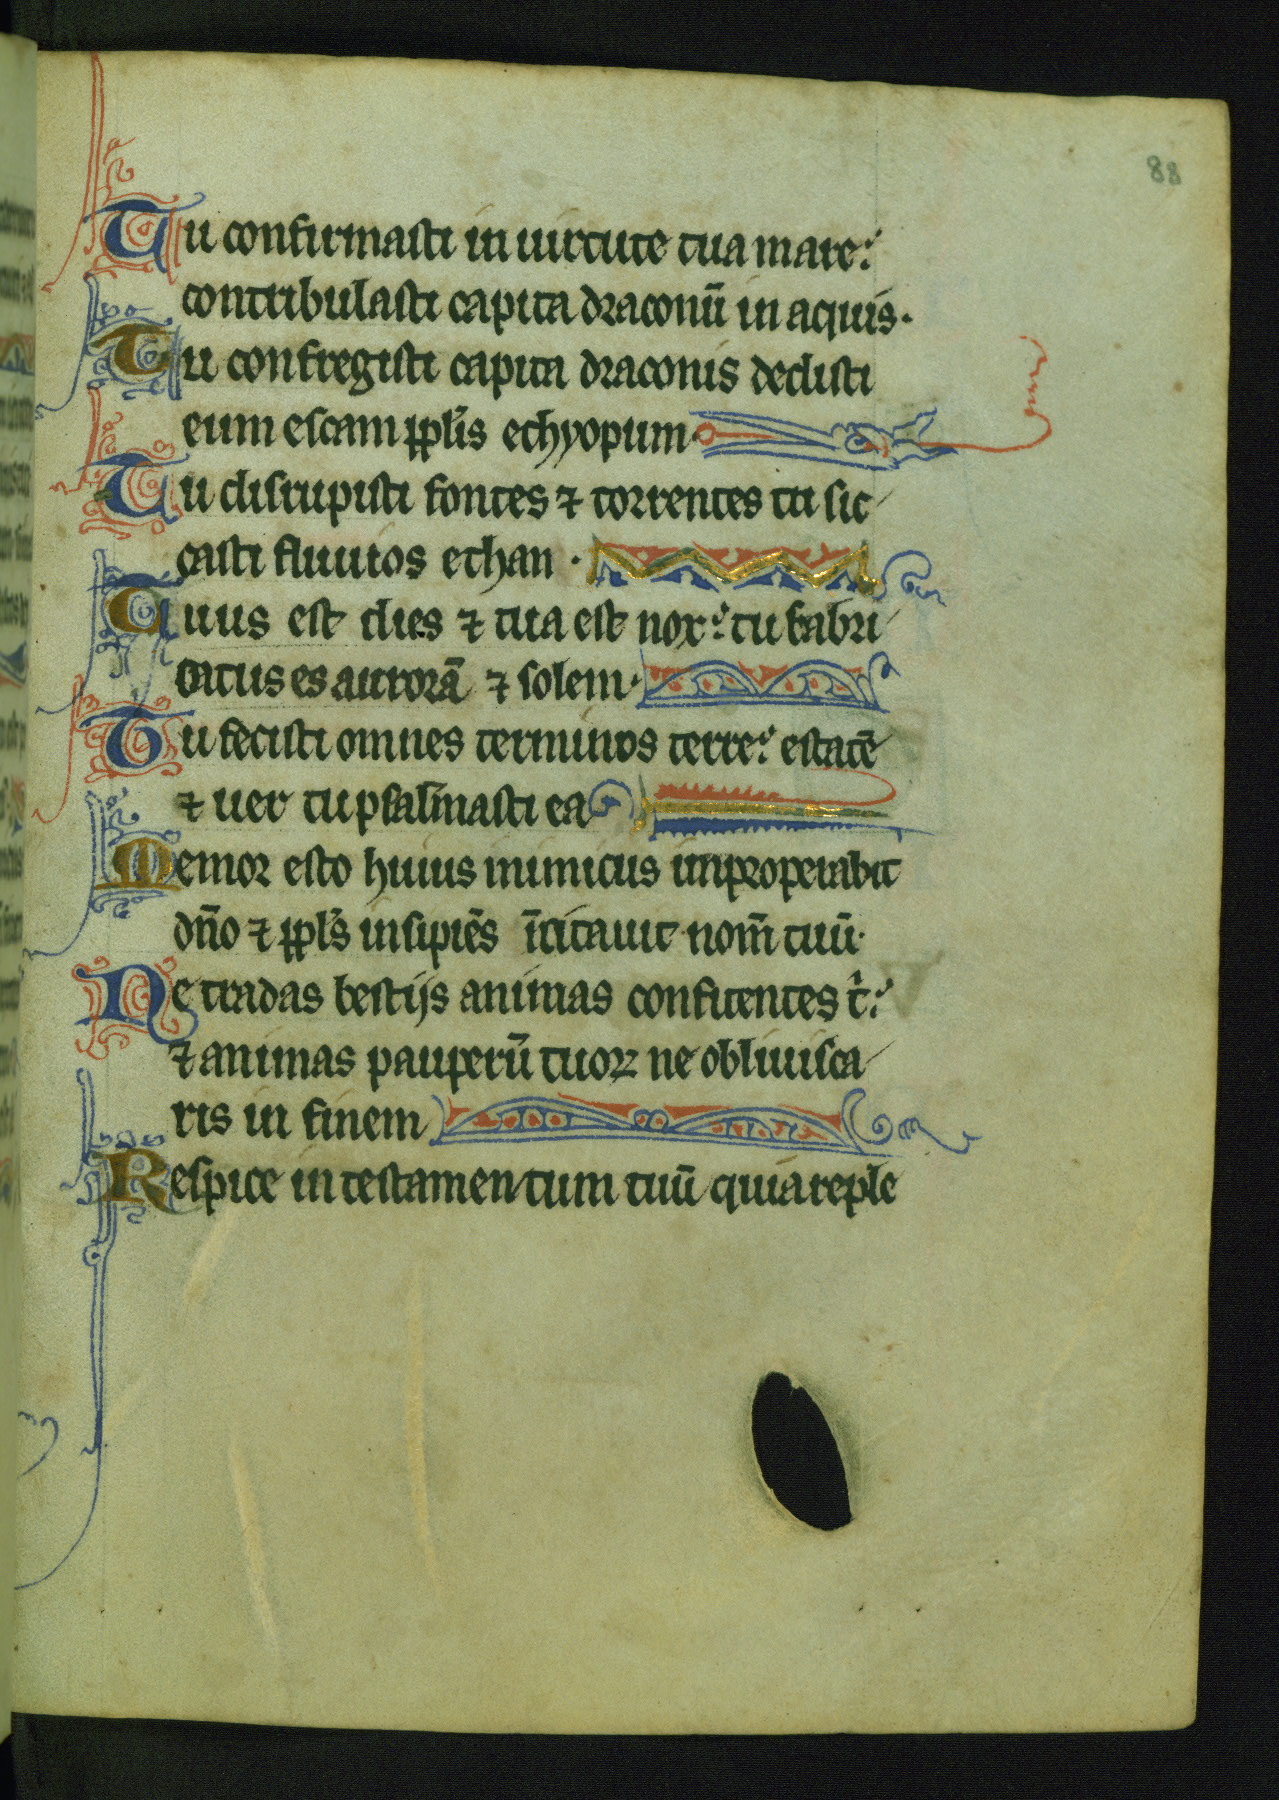 88
Tu confirmasti in uirtute tua mare:
contribulasti capita draconū in aquis.
Tu confregisti capita draconis dedisti
eum escam ppl̄is ethyopum
Tu disrupisti fontes ⁊ torrentes tu sic
casti fluuios ethan .
Tuus est dies ⁊ tua est nox: tu fabri
catus es aurorā ⁊ solem.
Tu fecisti omnes terminos terre: estatē
⁊ uer tu psalmasti ea
Memor esto huius inimicus improperabit
dn̄o ⁊ ppl̄s insipiēs īcitauit nom̄ tuū.
Ne tradas bestijs animas confitentes t̄:
⁊ animas pauperū tuoꝝ ne obliuisca
ris in finem
Respice in testamentum tuū quia reple